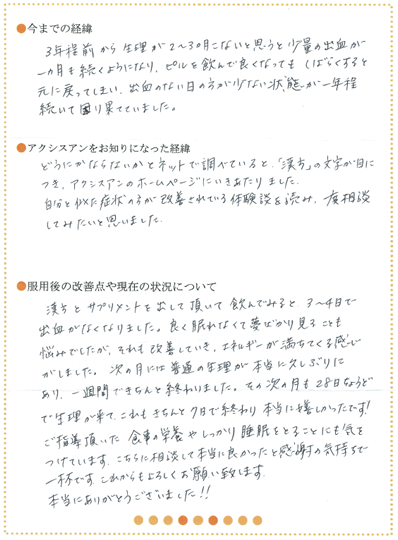 ●今までの経緯
3年程前から生理が2〜3ヵ月こないと思うと少量の出血が
一ヵ月も続くようになり、ピルを飲んで良くなっても しばらくすると
元に戻ってしまい、出血のない日の方が少ない状態が一年程
続いて困り果てていました。
●アクシスアンをお知りになった経緯
どうにかならないかとネットで調べていると、「漢方」の文字が目に
つき、アクシスアンのホームページにいきあたりました。
自分と似た症状の方が改善されている体験談を読み、一度相談
してみたいと思いました。
●服用後の改善点や現在の状況について
漢方とサプリメントを出して頂いて飲んでみると 3〜4日で
出血がなくなりました。良く眠れなくて夢ばかり見ることも
悩みでしたが、それも改善していき、エネルギーが満ちてくる感じ
がしました。次の月には普通の生理が本当に久しぶりに
あり、一週間できちんと終わりました。その次の月も28日ちょうど
で生理が来て、これもきちんと7日で終わり 本当に嬉しかったです!
ご指導頂いた 食事の栄養やしっかり睡眠をとることにも気を
つけています。こちらに相談して本当に良かったと感謝の気持ちで
一杯です。これからもよろしくお願い致します。
本当にありがとうございました!!